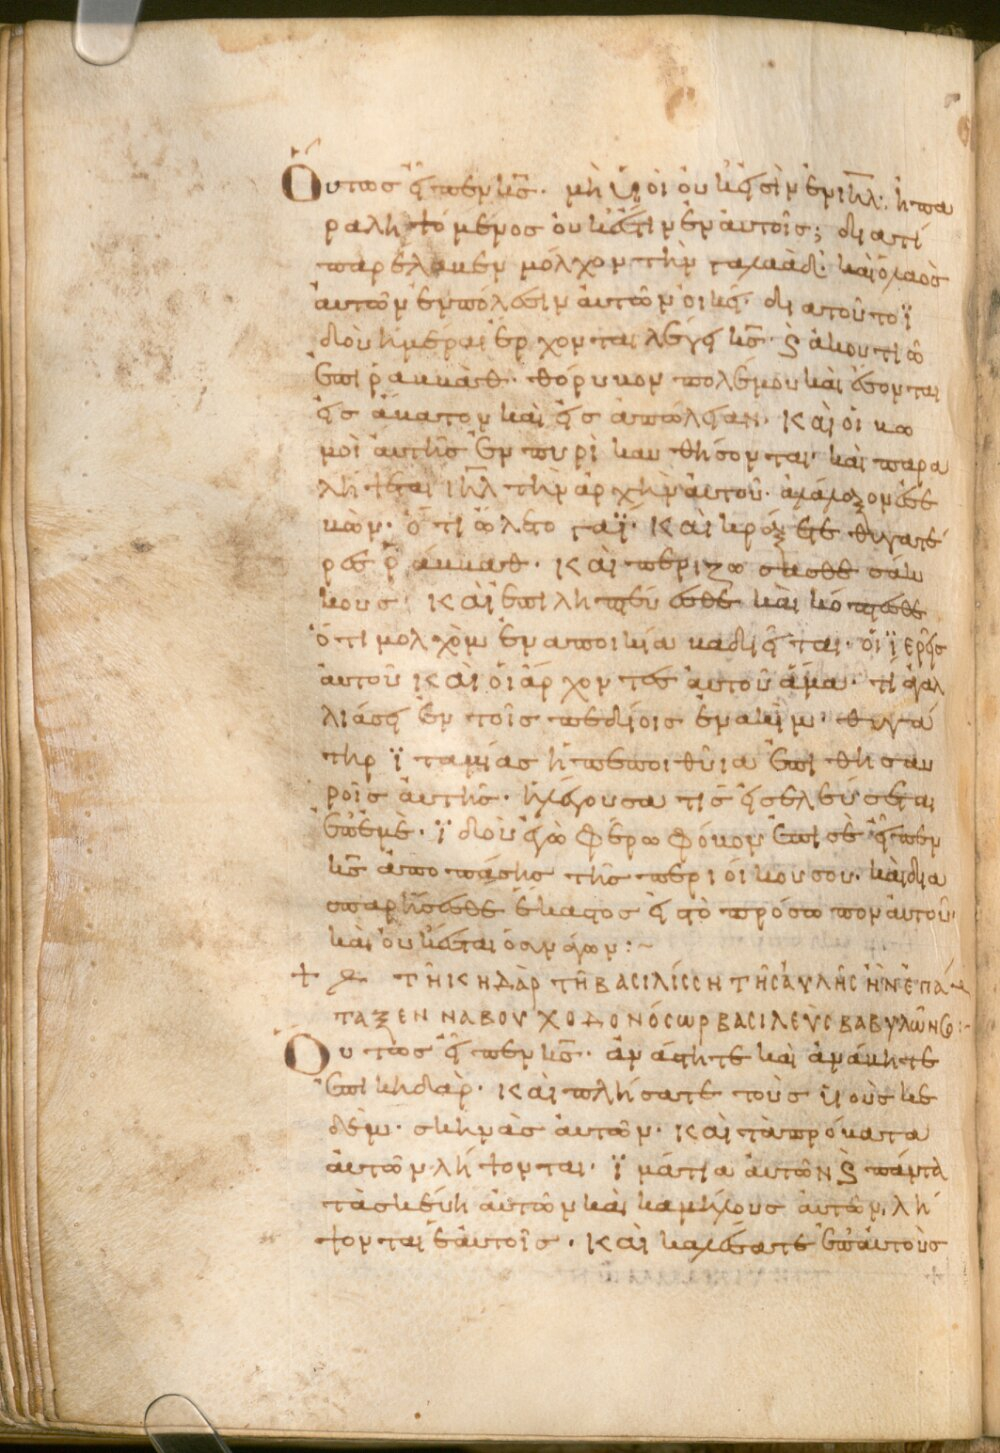 Ὅυτως εἶπεν κς̅· μὴ υἱοὶ ὀυκ εἰσὶν ἐν ιη̅λ· ἢ πα
ραληψόμενος ὀυκ ἔστιν ἐν ἀυτοῖς; διατί
παρέλαβεν μόλχομ τὴν γαλαάδ· καὶ ὁ λαὸς
ἀυτῶν ἐν πόλεσιν ἀυτῶν οἰκεῖ· διατοῦτο ϊ
δοὺ ἡμέραι ἔρχονται λέγει κς̅· ϗ ἀκουτιῶ
ἐπὶ ῥαββὰθ· θόρυβον πολέμου καὶ ἔσονται
εἰς ἄβατον καὶ εἰς ἀπώλειαν· καὶ οἱ βω
μοὶ ἀυτῆς ἐν πυρὶ καυθήσονται· καὶ παρα
λήψεται ιη̅λ τὴν ἀρχὴν ἀυτοῦ· ἀλάλαξον ἐσε
βών· ὅτι ὤλετο γαΐ· καὶ κράξετε θυγατέ
ρες ῥάββαθ· καὶ περιζώσασθε σάκ
κους· καὶ ἐπιληπτεύσθε καὶ κόψασθε
ὅτι μολχὸμ ἐν αποικία βαδιεῖται· οἱ ϊερεῖς
ἀυτοῦ καὶ οἱ ἄρχοντες ἀυτοῦ ἅμα· τί ἀγαλ
λιάσει ἐν τοῖς πεδίοις ἐνακὶμ· θυγά
τηρ ϊταμίας ἡ πεποιθυῖα ἐπὶ θησαυ
ροῖς ἀυτῆς· ἡ λέγουσα τίς εἰσελεύσεται
ἐπ' ἐμὲ· ϊδοὺ ἐγὼ φέρω φόβον ἐπὶ σὲ εἶπεν
κς̅ ἀπο πάσης τῆς περιοίκου σου· καὶ δια
σπαρήσεσθε ἕκαστος εἰς τὸ πρόσωπον ἀυτοῦ·
καὶ ὀυκ ἔσται ὁ συνάγων:~
+ ΤΗ͂Ι ΚΗΔὰΡ ΤΗ͂ ΒΑΣΙΛίΣΣΗ ΤΗ͂Σ ἀΥΛΗ͂Σ ἣΝ ἐΠά
ΤΑΞΕΝ ΝΑΒΟΥΧΟΔΟΝόΣΩΡ ΒΑΣΙΛΕὺΣ ΒΑΒΥΛῶΝΟΣ:-
Ὁυτως εἶπεν κς̅· ἀνάστητε καὶ ἀνάβητε
ἐπὶ κηδὰρ· καὶ πλήσατε τοὺς υἱοὺς κε
δὲμ· σκηνὰς ἀυτῶν· καὶ τὰ πρόβατα
ἀυτῶν λήψονται· ϊμάτια ἀυτῶν ϗ πάντα
τὰ σκεύη ἀυτῶν καὶ καμήλους ἀυτῶν λή
ψονται ἑαυτοῖς· καὶ καλέσατε ἐπ' ἀυτοὺς